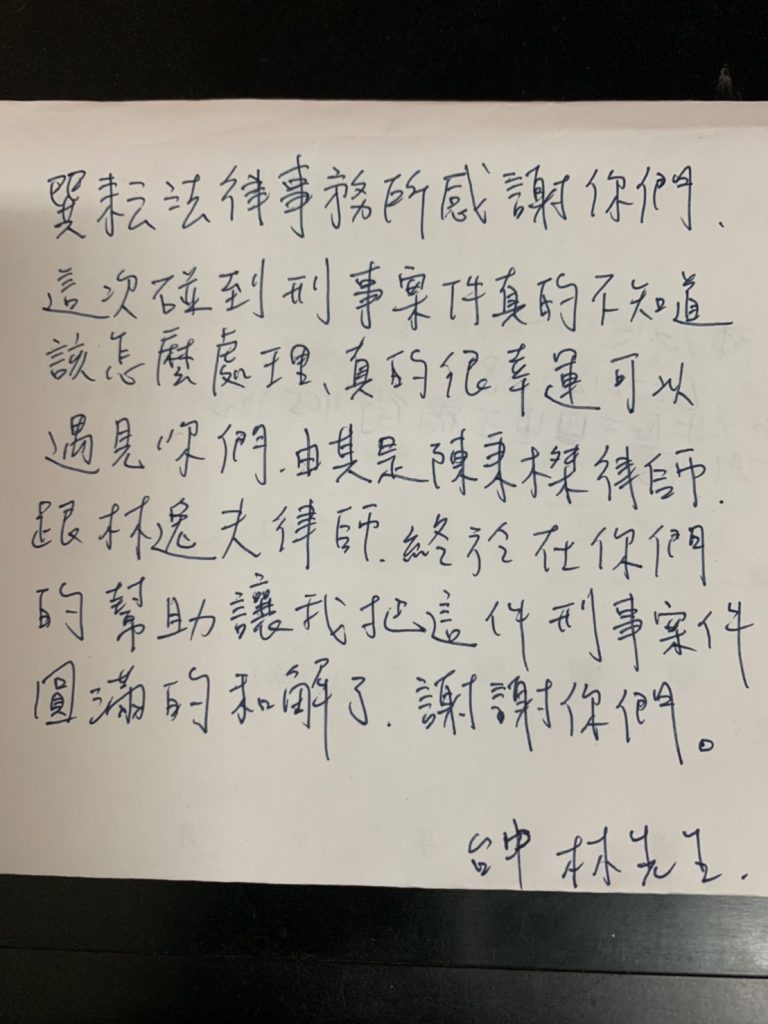 巽耘法律事務所感謝你們.
這次碰到刑事案件真的不知道
該怎麼處理、真的很幸運可以
遇見你們.由其是陳秉榤律師.
跟林逸夫律師.終於在你們
的幫助讓我把這件刑事案件
圓滿的和解了.謝謝你們。
台中 林先生.